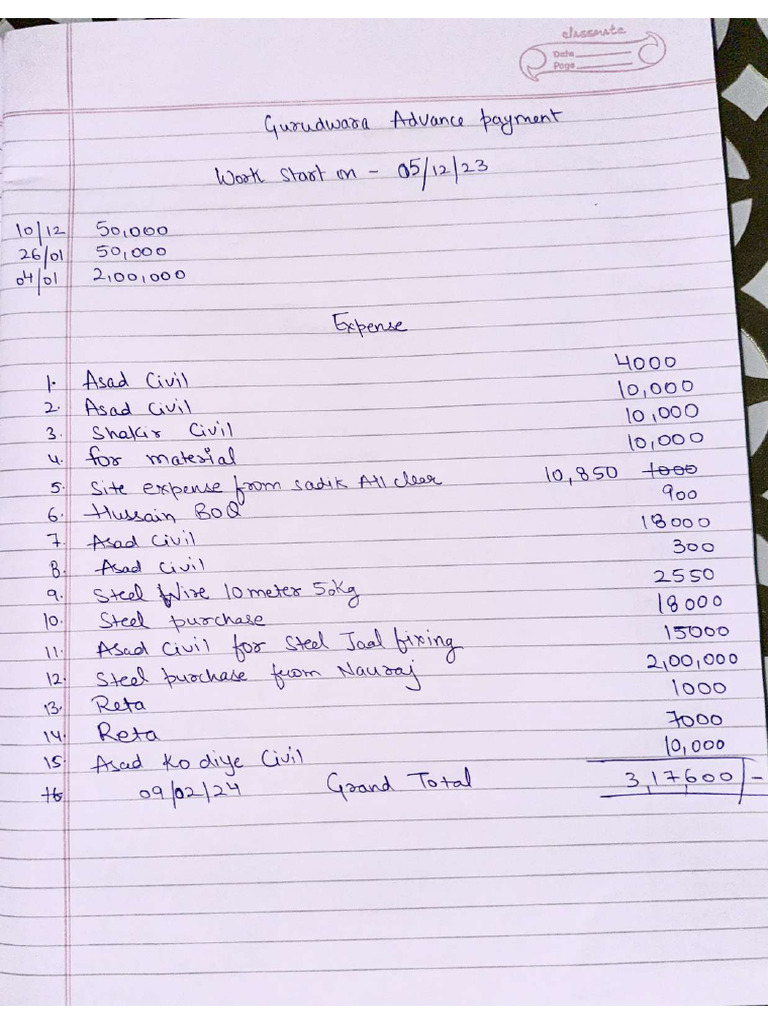 classmate
Date
Page
Gurudwara Advance payment
Work Start on - 05/12/23
10/12 50,000
26/01 50,000
04/01 2,00,000
Expense
1. Asad Civil 4000
2. Asad Civil 10,000
3. Shakir Civil 10,000
4. for material 10,000
5. Site expense from Sadik All clear 10,850 1000
6. Hussain BOQ 900
7. Asad Civil 18000
8. Asad Civil 300
9. Steel Wire 10 meter 50kg 2550
10. Steel purchase 18000
11. Asad Civil for Steel Jaal fixing 15000
12. Steel purchase from Nauraj 2,00,000
13. Reta 1000
14. Reta 7000
15. Asad Ko diye Civil 10,000
16 09/02/24 Grand Total 3,17600/-